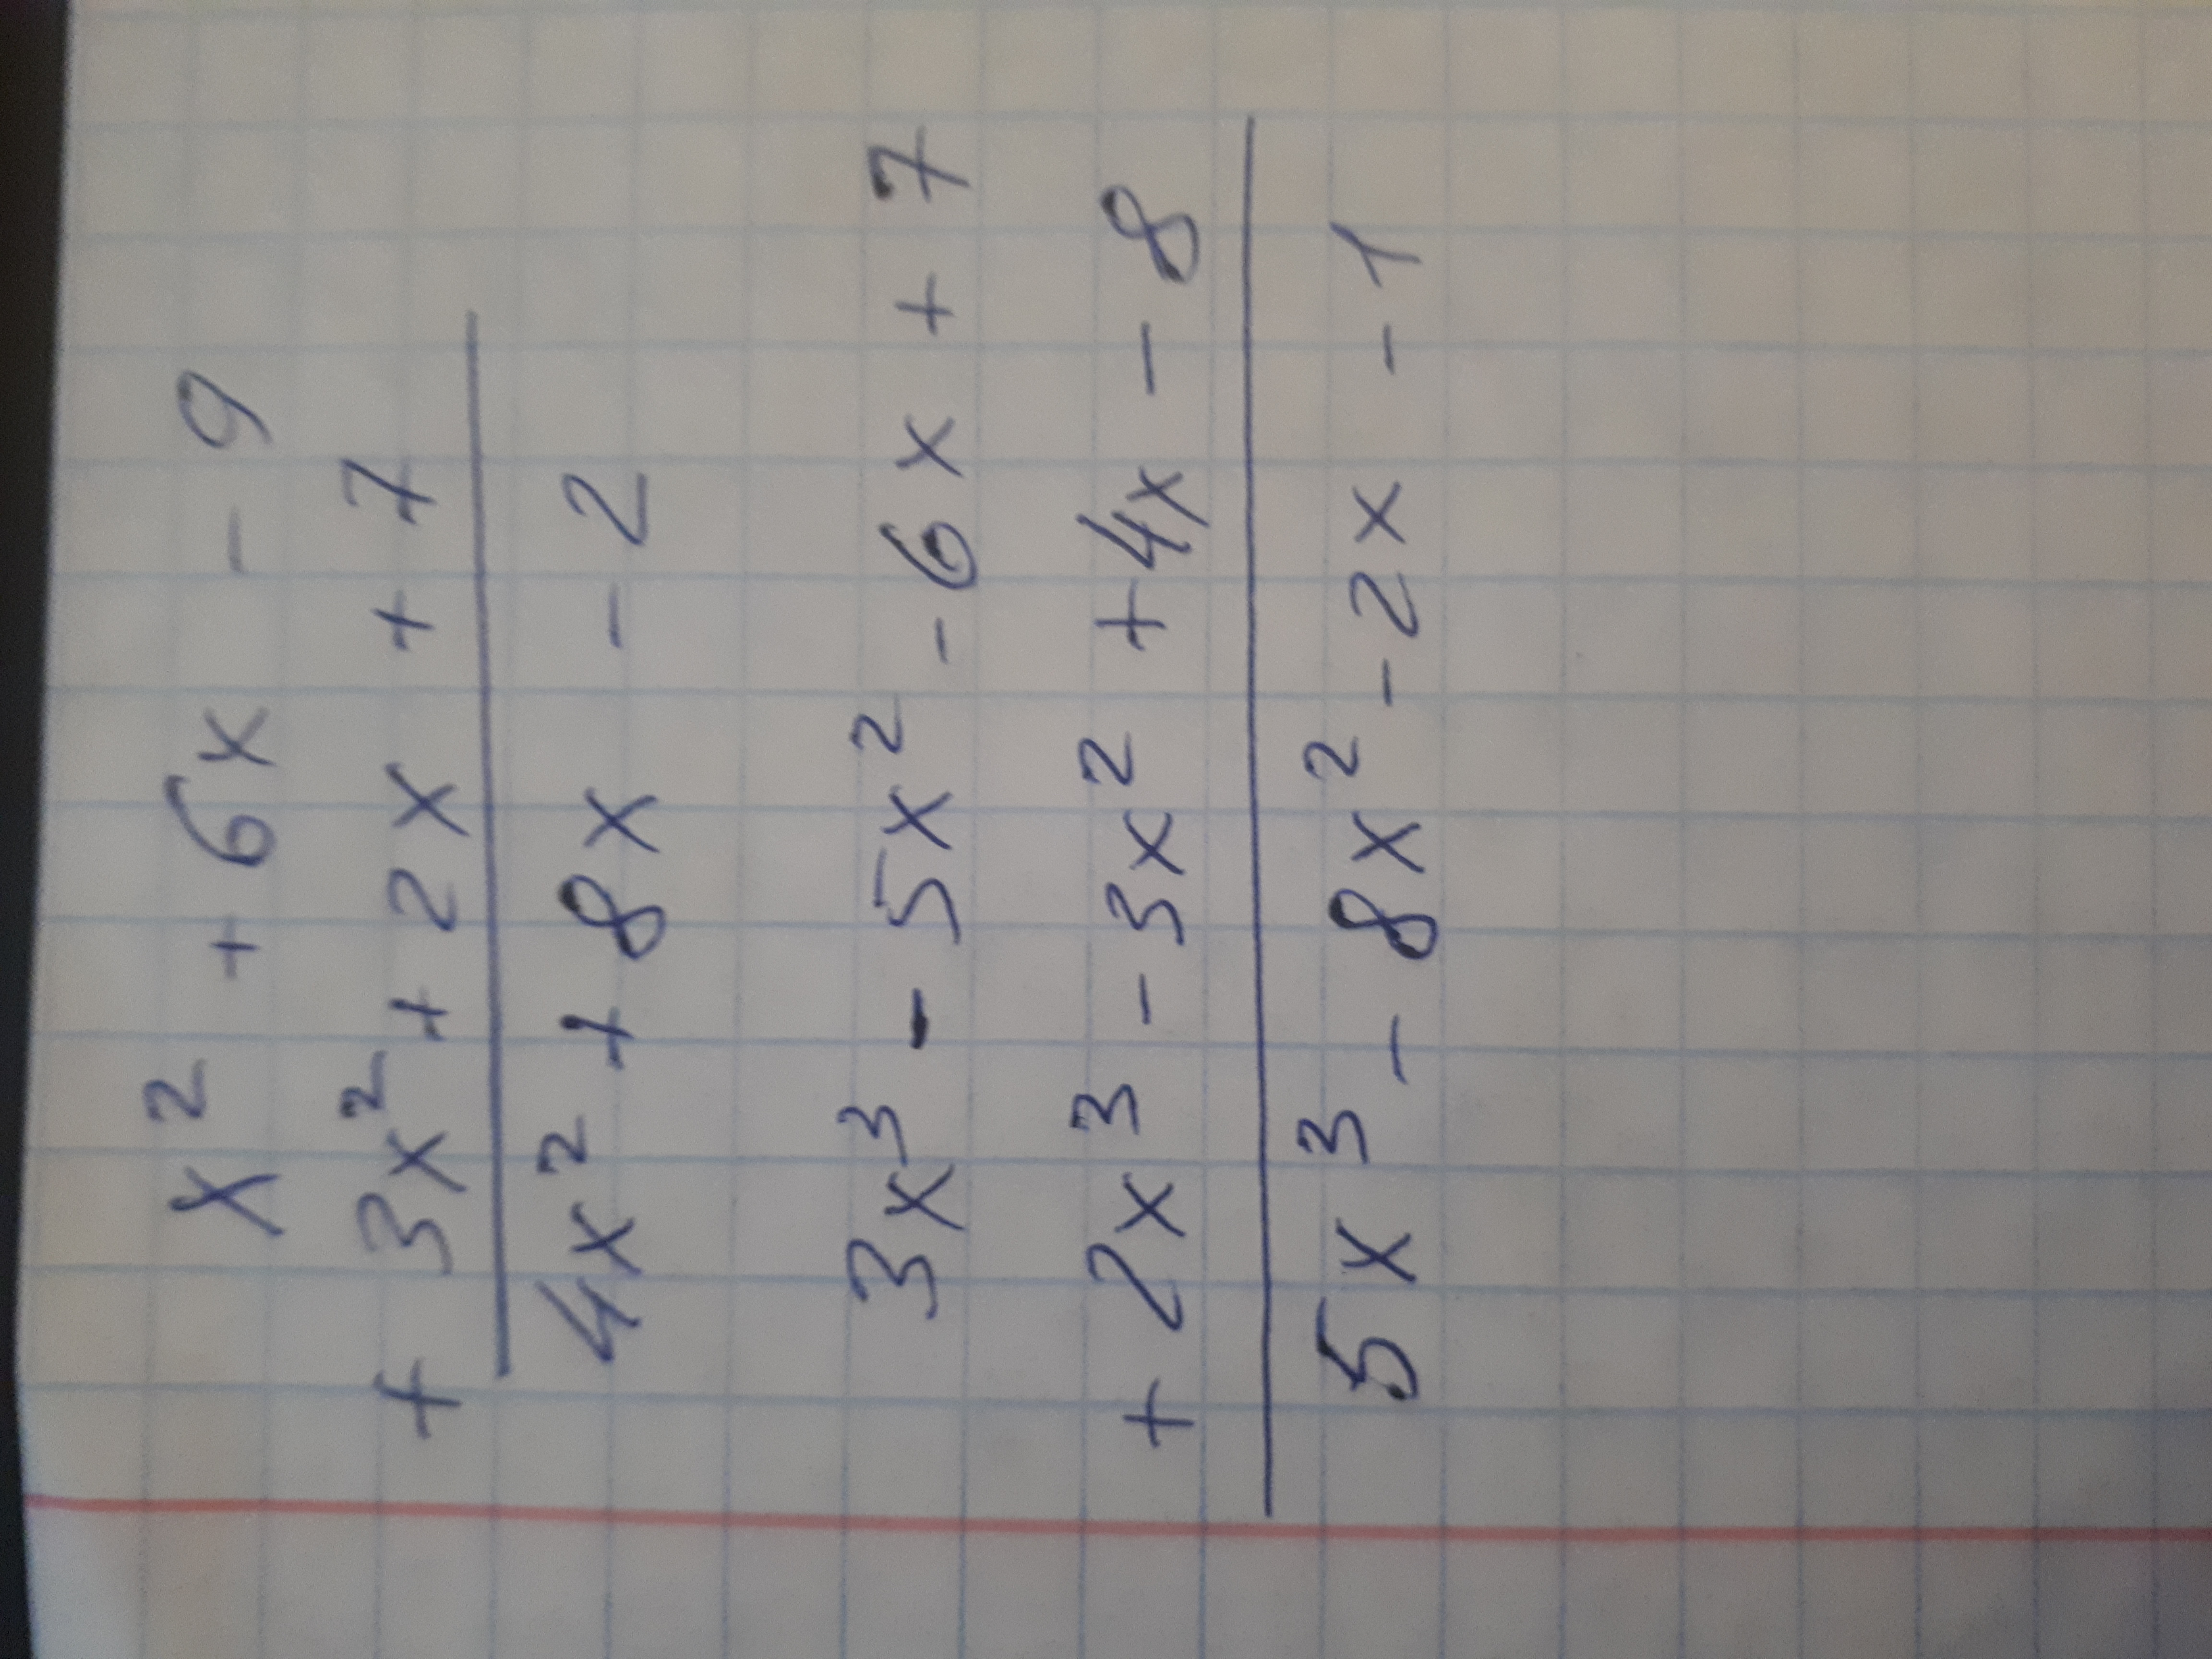 x² + 6x - 9
+ 3x² + 2x + 7
4x² + 8x - 2
3x³ - 5x² - 6x + 7
+ 2x³ - 3x² + 4x - 8
5x³ - 8x² - 2x - 1